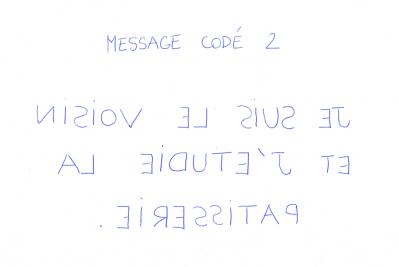 MESSAGE CODÉ 2
JE SUIS LE VOISIN
ET J'ETUDIE LA
PATISSERIE.